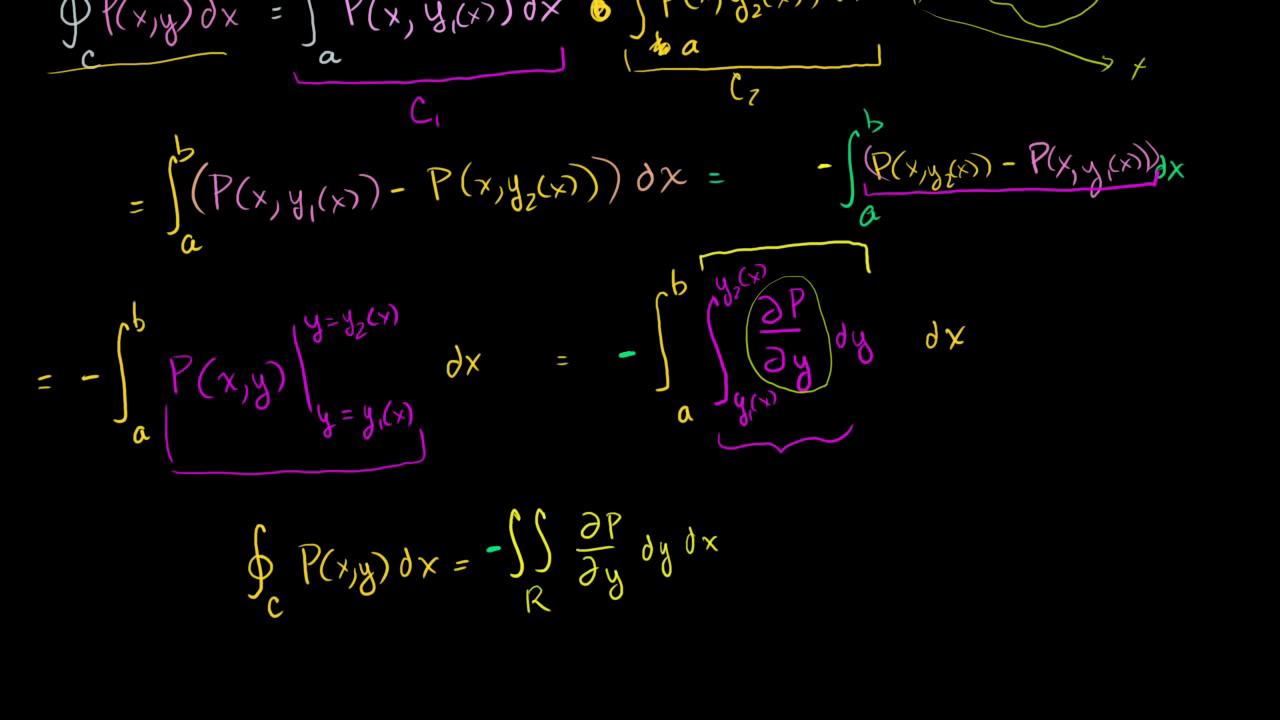 ∮_C P(x,y) dx = ∫_a P(x, y₁(x)) dx ∫_a
x
C₁ C₂
= ∫_a^b (P(x, y₁(x)) - P(x, y₂(x))) dx = - ∫_a^b (P(x, y₂(x)) - P(x, y₁(x))) dx
= - ∫_a^b P(x,y) |_{y = y₁(x)}^{y = y₂(x)} dx = - ∫_a^b ∫_{y₁(x)}^{y₂(x)} ∂P/∂y dy dx
∮_C P(x,y) dx = - ∬_R ∂P/∂y dy dx